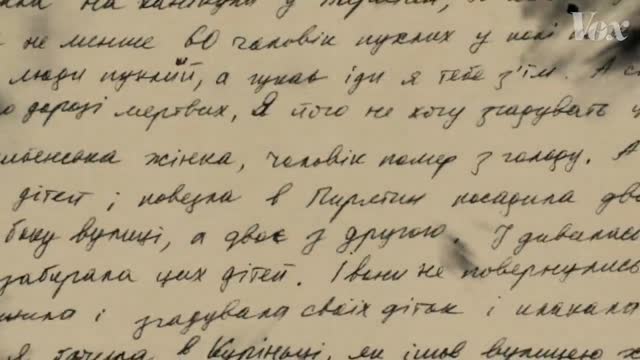 на канікули у Пирятин,
не менше 60 чоловік пухлих у полі
люди пухлий, а гукав іди я тебе з'їм. А
дорозі мертвих, Я його не хочу згадувать
жінка, чоловік помер з голоду. А
дітей і повезла в Пирятин посадила дво
боку вулиці, а двоє з другою. І дивилась
забирала цих дітей. І вони не повернулись
і згадувала своїх діток і плакала
Я бачила в Куріньці, як ішов вулицею
Vox